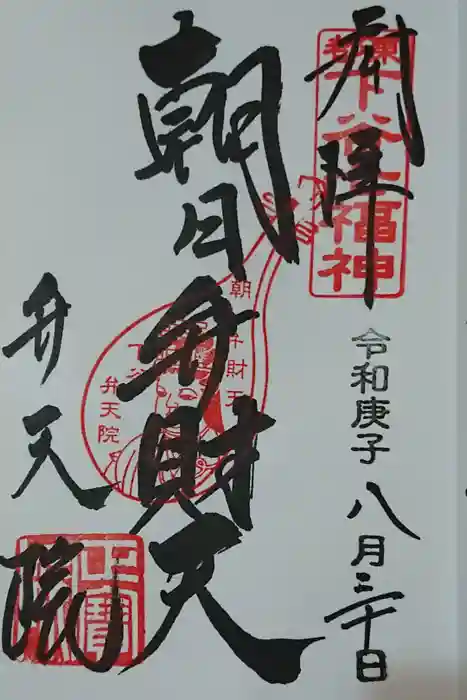 奉拝
東都
下谷七福神
令和庚子
八月三十日
朝日弁財天
朝日弁財天
下谷
弁天院
弁天院